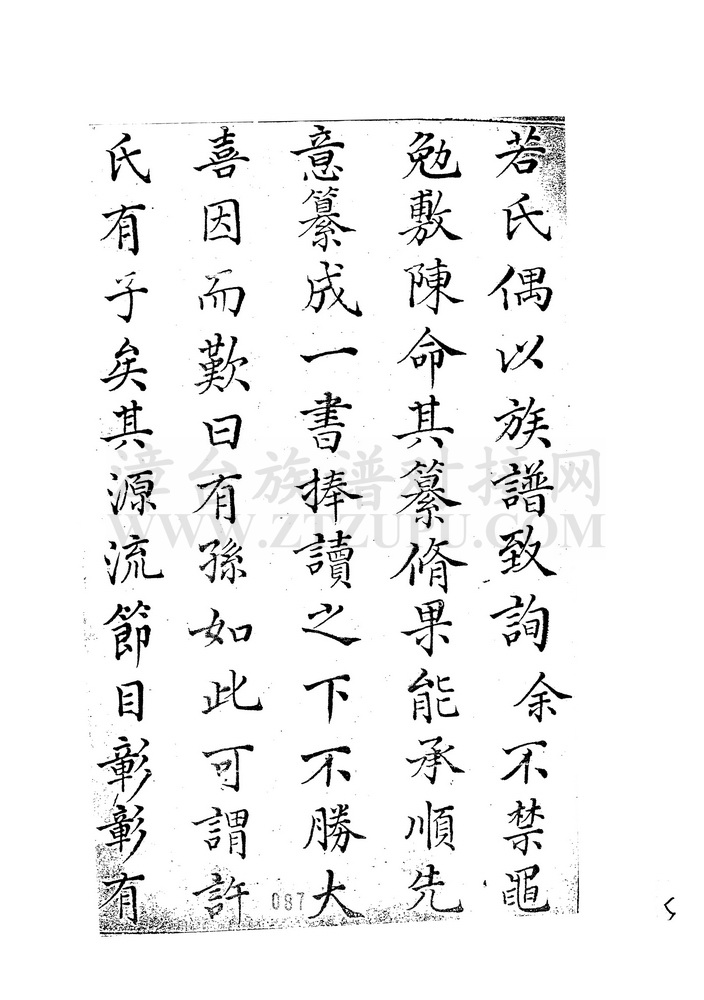 若氏偶以族譜致詢余不禁黽
勉敷陳命其纂脩果能承順先
意纂成一書捧讀之下不勝大
喜因而歎曰有孫如此可謂許
氏有子矣其源流節目彰彰有
漳台族谱对接网
WWW.ZTZUPU.COM
087